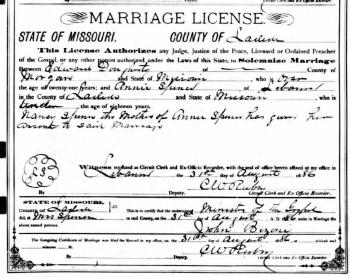 MARRIAGE LICENSE.
STATE OF MISSOURI. COUNTY OF Laclede
This License Authorizes any Judge, Justice of the Peace, Licensed or Ordained Preacher
of the Gospel, or any other person authorized under the Laws of this State, to Solemnize Marriage
Between Edward County of
Morgan and State of Missouri who is Over
the age of twenty-one years; and Annie Spence of Lebanon
in the County of Laclede and State of Missouri who is
under the age of eighteen years.
Nancy Spence the Mother of Annie Spence has given her
to said Marriage
Witness my hand as Circuit Clerk and Ex-Officio Recorder, with the seal of office hereto affixed at my office in
Lebanon the 31st day of August 1886
By Deputy. Circuit Clerk and Ex-Officio Recorder.
STATE OF MISSOURI,
County of This is to certify that the undersigned Minister of the Gospel
did, at Mrs Spence in said County, on the 31st day of August A. D. 1886 unite in Marriage
the above named persons.
John
The foregoing Certificate of Marriage was filed for Record in my office, on the 31st day of August 1886
By Deputy. Circuit Clerk and Ex-Officio Recorder.